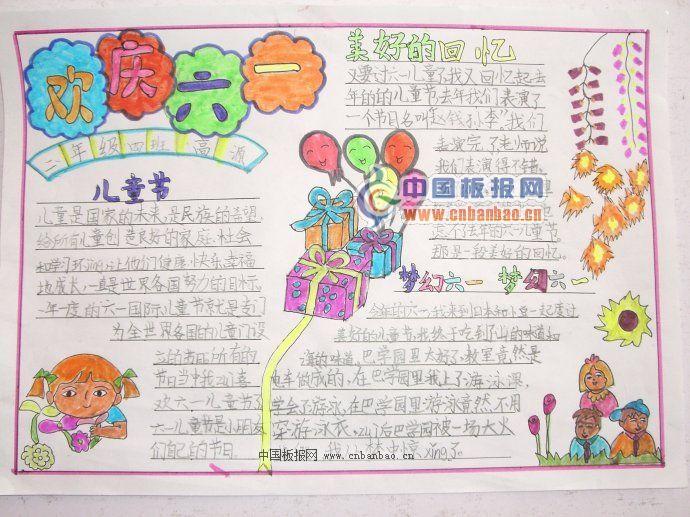 欢庆六一
二年级四班 高源
儿童节
儿童是国家的未来,是民族的希望,
给所有儿童创造良好的家庭、社会
和学习环境,让他们健康、快乐、幸福
地成长,一直是世界各国努力的目标,
一年一度的六一国际儿童节就是专门
为全世界各国的儿童们设
立的节日,所有的
节日当中我们喜
欢六一儿童节
六一儿童节是小朋友
们自己的节日
美好的回忆
又要过六一儿童了我又回忆起去
年的的儿童节去年我们表演了
一个节目名叫“赵钱孙李”。我们
表演完了老师说
我们表演得不错。
忘不了去年的六一儿童节。
那是一段美好的回忆。
中国板报网
www.cnbanbao.cn
梦幻六一 梦幻六一
今年的六一我来到日本和小豆一起度过
美好的儿童节,我终于吃到了山的味道和
海的味道,巴学园里太好了,教室竟然是
电车做成的,在巴学园里我上了游泳课,
学会了游泳,在巴学园里游泳竟然不用
穿游泳衣,
后巴学园被一场大火
中国板报网 www.cnbanbao.cn
xing